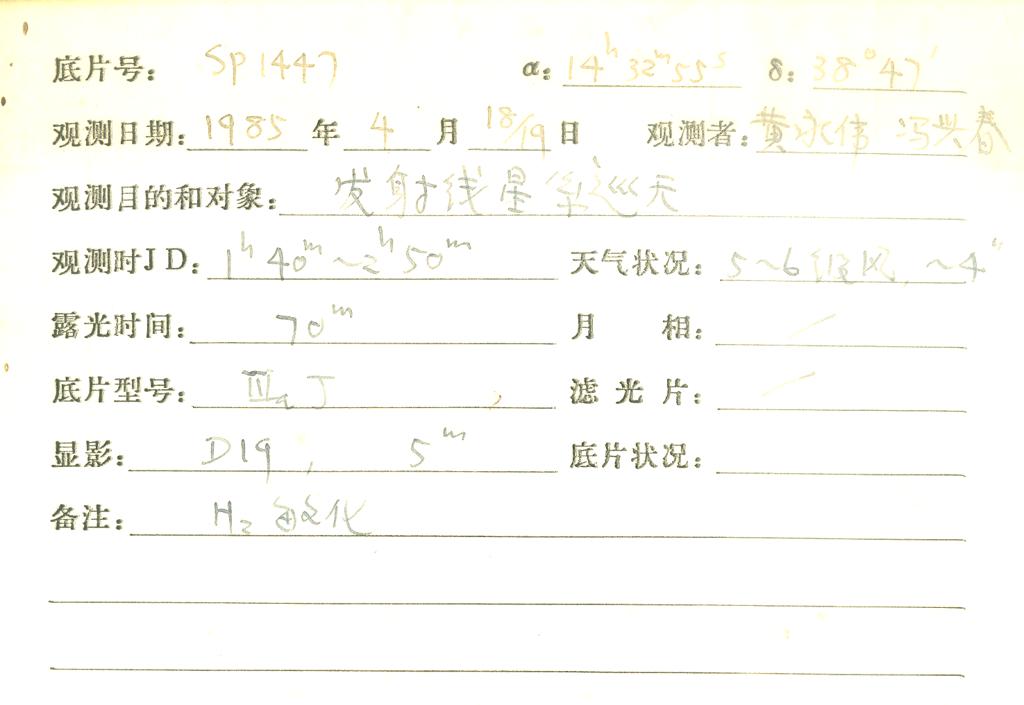 底片号： Sp1447 α：14ʰ32ᵐ55ˢ δ：38°47′
观测日期：1985年4月18/19日 观测者：黄永伟 冯兴春
观测目的和对象：发射线星系巡天
观测时JD：1ʰ40ᵐ～2ʰ50ᵐ 天气状况：5～6级风，～4″
露光时间：70ᵐ 月相：／
底片型号：ⅢaJ 滤光片：／
显影：D19， 5ᵐ 底片状况：
备注：H₂敏化